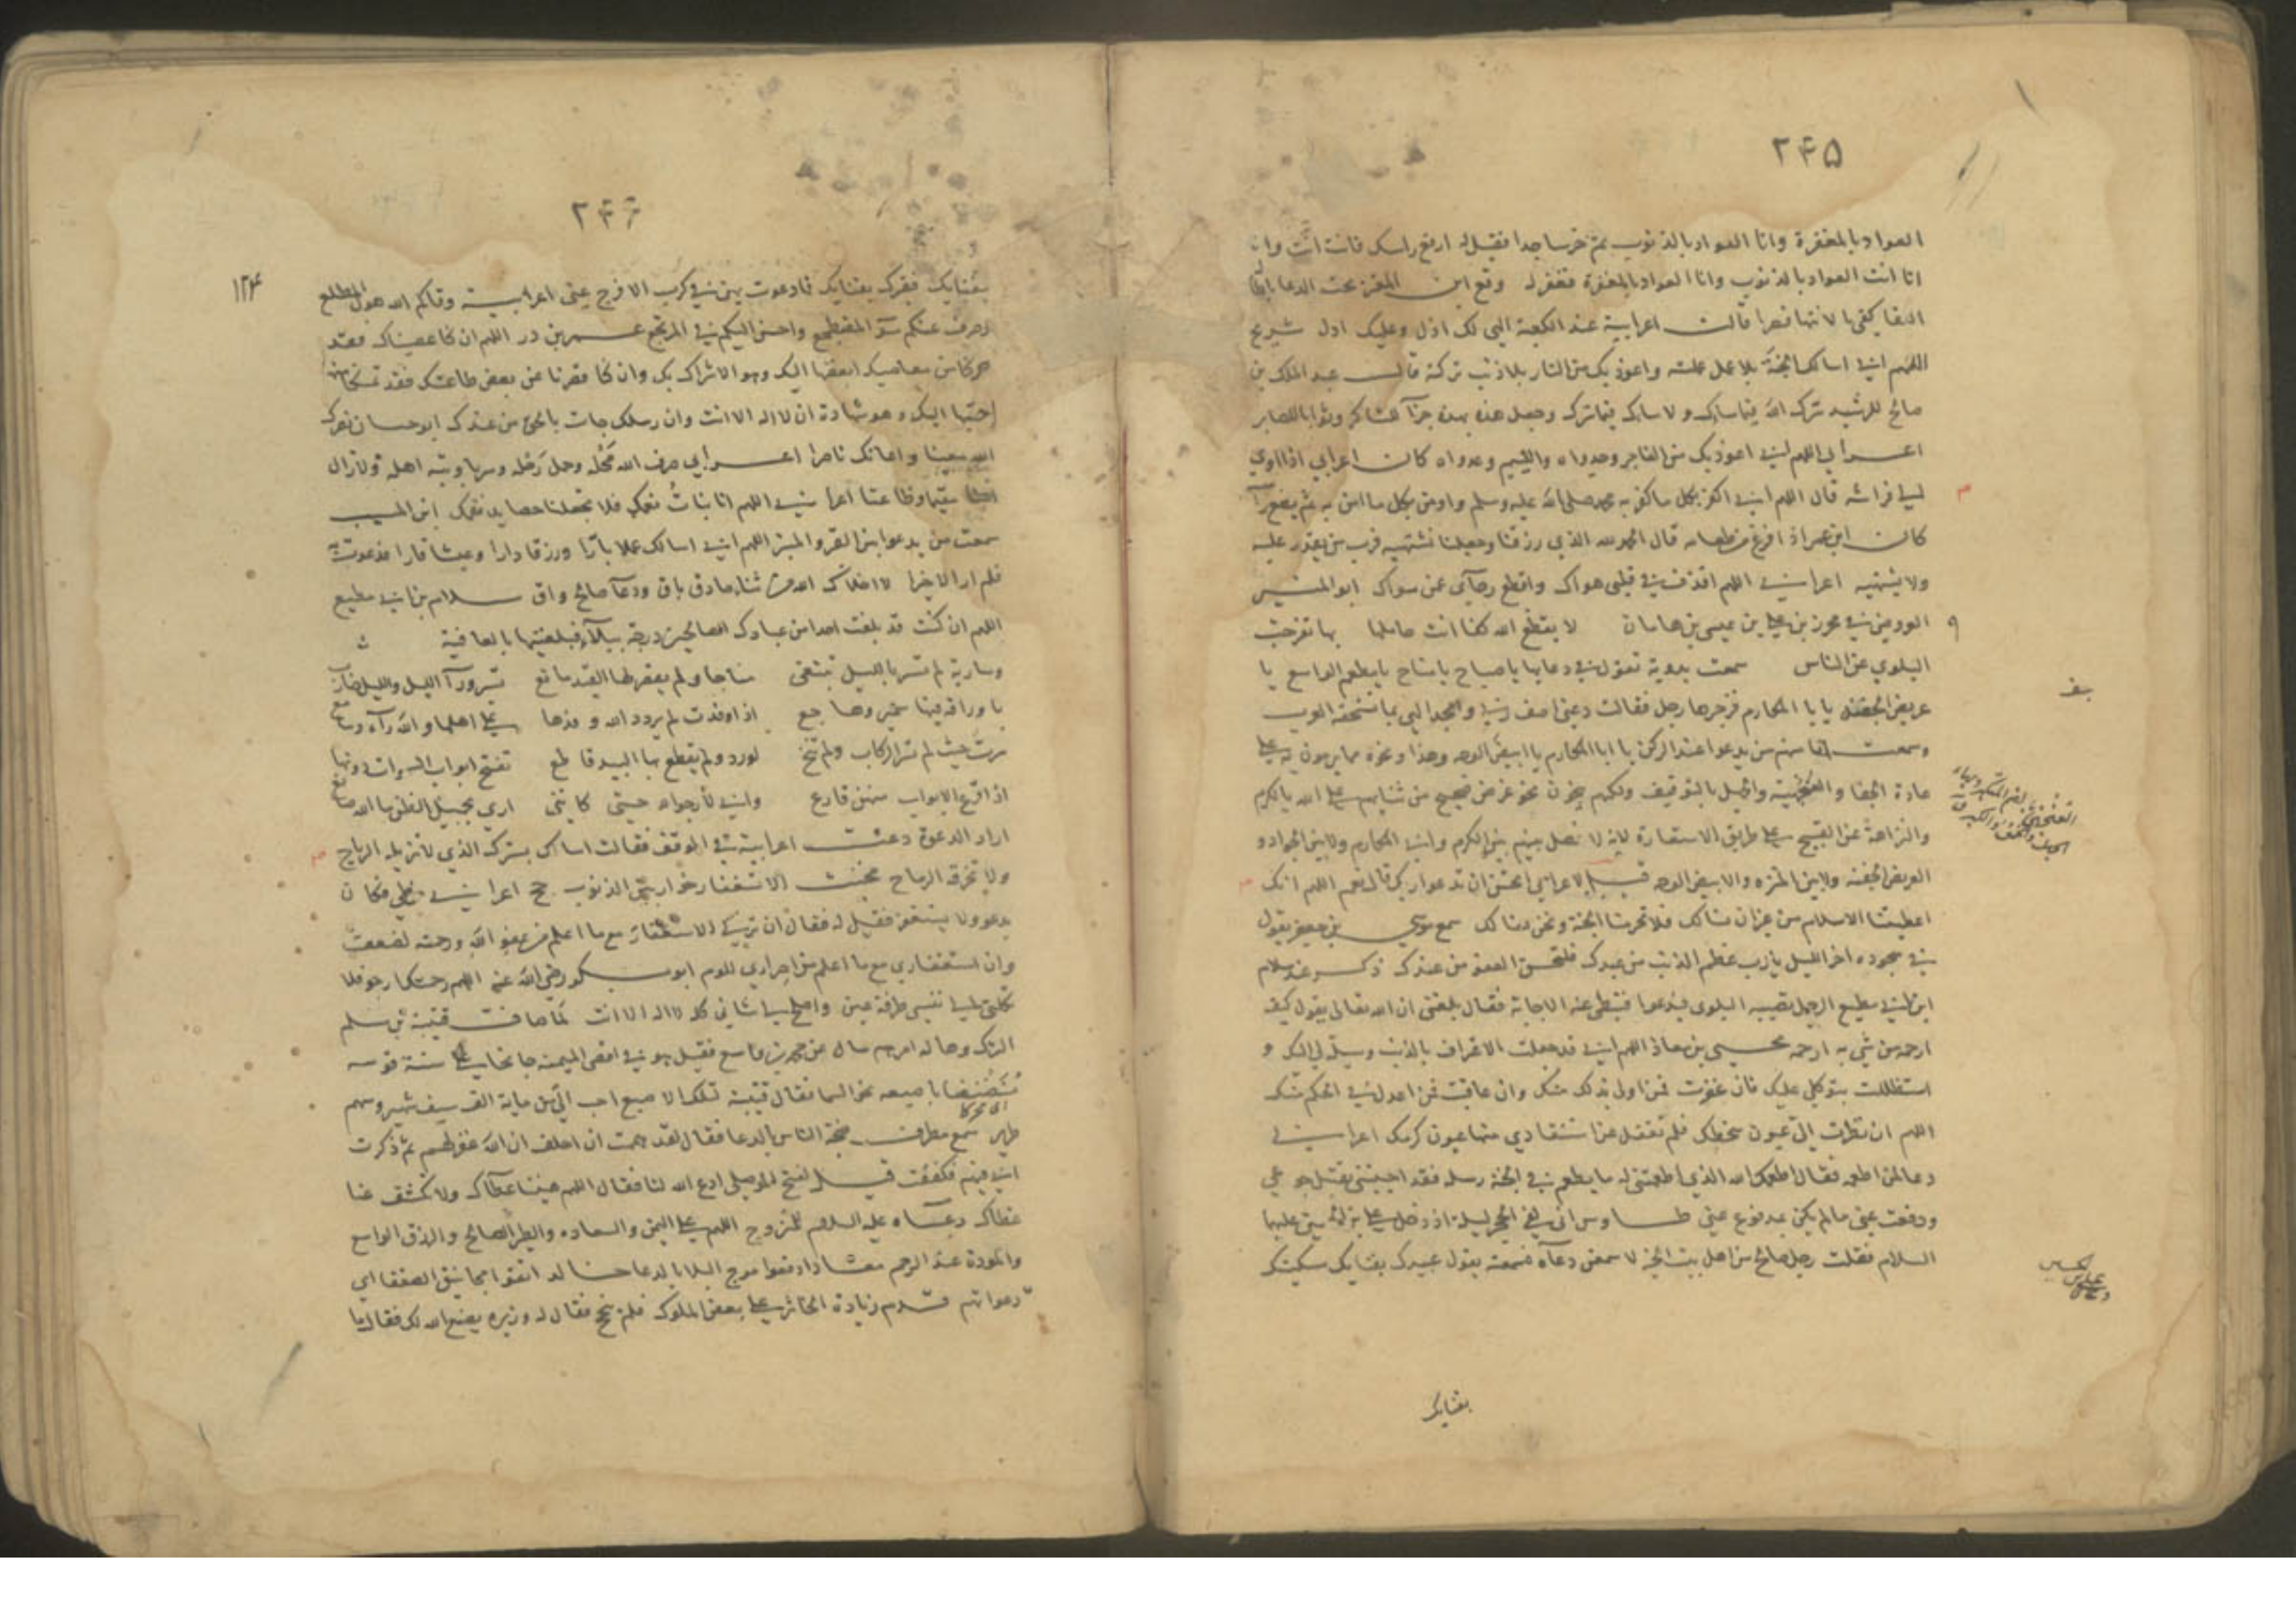 ۲۴۵
العواد بالمغفرة وانا العواد بالذنوب ثم خر ساجدا فقيل له ارفع راسك فانت انت وانا
انا انت العواد بالذنوب وانا العواد بالمغفرة فغفر له وقع ابن المعتز تحت الدعا باطا
البقا كفى بالانتها قصرا قالت اعرابية عند الكعبة الهي لك اذل وعليك ادل شريح
اللهم اني اسالك الجنة بلا عمل عملته واعوذ بك من النار بلا ذنب تركته قال عبد الملك بن
صالح للرشيد سرك الله فيما ساك ولا ساك فيما سرك وجعل هذه بهذه جزآ للشاكر وثوابا للصابر
اعرابي اللهم اني اعوذ بك من الفاجر وجدواه واللئيم وعدواه كان اعرابي اذا اوي
الي فراشه قال اللهم اني اكفر بكل ما كفر به محمد صلى الله عليه وسلم واومن بكل ما امن به ثم يضع راسه
كان ابن عمر اذا فرغ من طعامه قال الحمد لله الذي رزقنا وجعلنا نشتهيه فرب من يقدر عليه
ولا يشتهيه اعرابي اللهم اقذف في قلبي هواك واقطع رجآى عمن سواك ابو
في محرز بن علي بن عيسى بن هامان لا يقطع الله كفا انت حاملها بها تفرجت
البلوي عن الناس سمعت بدوية تقول في دعايها يا صباح يا مناح يا مطعم الواسع يا
عريض الجفنه يا با المكارم فزجرها رجل فقالت دعني اصف ربي وامجد الهي بما تستحقه العرب
وسمعت انا منهم من يدعوا عند الركن يا ابا المكارم يا ابيض الوجه وهذا ونحوه مما يرمون به على
عادة الجفا و والجهل بالتوقيف ولكنهم ينحون نحو غرض صحيح من ثنايهم على الله بالكرم
والنزاهة عن القبيح على طريق الاستعارة لانه لا فصل بينهم بين الكرم وابي المكارم ولا بين الجواد و
العريض الجفنه ولا بين المنزه والابيض الوجه قيل لاعرابي اتحسن ان تدعو ربك قال نعم اللهم انك
اعطيتنا الاسلام من غير ان نسالك فلا تحرمنا الجنة ونحن نسالك سمع موسى بن جعفر يقول
في سجوده اخر الليل يا رب عظم الذنب من عبدك فليحسن العفو من عندك ذكر عند سلام
ابن ابي مطيع الرجل تصيبه البلوى فيدعوا فتبطى عنه الاجابة فقال بلغنى ان الله تعالى يقول كيف
ارحمه من شي به ارحمه يحيى بن معاذ اللهم اني قد جعلت الاعتراف بالذنب وسيلة لي اليك و
استظللت بتوكلي عليك فان غفرت فمن اولى بذلك منك وان عاقبت فمن اعدل في الحكم منك
اللهم ان نظرت الي عيون سخطك فلم تغفل عن استنقاذي منها عيون كرمك اعرابي
دعا لمن اطعمه فقال اطعمك الله الذي اطعمتني له ما يطعم في الجنة رسله فقد احييتني بقتل جوعي
ودفعت عني ما لم يكن بمدفوع عني طاوس اني لفي الحجر ليلة اذ دخل علي بن عليهما
السلام فقلت رجل صالح من اهل بيت الخير لا سمعن دعآه فسمعته يقول عبيدك بفنايك مسكينك
بفنايك
بف
۲۴۶
۱۲۴
بفنايك فقيرك بفنايك فما دعوت بهن في كرب الا فرج عني اعرابية وقاكم الله هول المطلع
وصرف عنكم سوء واحسن اليكم في المرتجع عمر بن ذر اللهم ان كنا عصيناك فقد
تركنا من معاصيك ابغضها اليك وهو الاشراك بك وان كنا قصرنا عن بعض طاعتك فقد تمسكنا منها
احبها اليك وهو شهادة ان لا اله الا انت وان رسلك جات بالحق من عندك ابو حسان نصرك
الله واعانك ناصرا اعرابي صرف الله وحل رحله وسربا وبته اهله ولا زال
مقيما وظاعنا اعرابي اللهم انا نبات نعمك فلا تجعلنا حصايد نقمك ابن المسيب
سمعت من يدعوا بين القبر والمنبر اللهم اني اسالك عملا بارا ورزقا دارا وعيشا قارا فدعوت به
فلم ار الا خيرا لا اخلاك الله من ثناء صادق باق ودعآ صالح واق سلام بن ابي مطيع
اللهم ان كنت قد بلغت احدا من عبادك الصالحين درجة ببلآء فبلغنيها بالعافية
وسارية لم تسر بالليل تبتغى مناخا ولم يقصر لها القيد مانع تسرورآ الليل والليل ضارب
باوراقه فيها سمير وهاجع اذا وفدت لم يردد الله وفدها على اهلها والله رآء وسامع
سرت حيث لم تسر الركاب ولم تنخ لورد ولم يقطع بها البيد قاطع تفتح ابواب السموات دونها
اذا قرع الابواب منهن قارع واني لارجو الله حتى كانني ارى بجميل الظن ما الله صانع
اراد الدعوة دعت اعرابية في الموقف فقالت اسالك بسترك الذي لا تزيله الرياح
ولا تخرقه الرماح الاستغفار الذنوب حج اعرابي فكان
يدعو ولا يستغفر فقيل له فقال ان تركي الاستغفار مع ما اعلم من عفو الله ورحمته لضعف
وان استغفاري مع ما اعلم من اصراري للوم ابو بكر رضي الله عنه اللهم رحمتك ارجو فلا
تكلني الي نفسي طرفة عين واصلح لي شاني كله لا اله الا انت لما صافت قتيبة بن مسلم
الترك وهاله امرهم سال عن محمد بن واسع فقيل هو في اقصى الميمنه جانحا على سنة قوسه
باصبعه نحو السما فقال قتيبة تلك الاصبع احب الي من ماية الف سيف شهير وسهم
طرير سمع مطرف ضجة الناس بالدعا فقال لقد هممت ان احلف ان الله غفر لهم ثم ذكرت
اني فيهم فكففت قيل لفتح الموصلي ادع الله لنا فقال اللهم هبنا عطآك ولا تكشف عنا
غطآك دعآه عليه السلام للمتزوج اللهم على اليمن والسعاده والطير الصالح والرزق الواسع
والمودة عند الرحم ادفعوا موج البلا بالدعا اتقوا مجانيق الضعفا اي
دعواتهم قدم زيادة على بعض الملوك فلم ينجح فقال له وزيره يصنع الله لك فقال